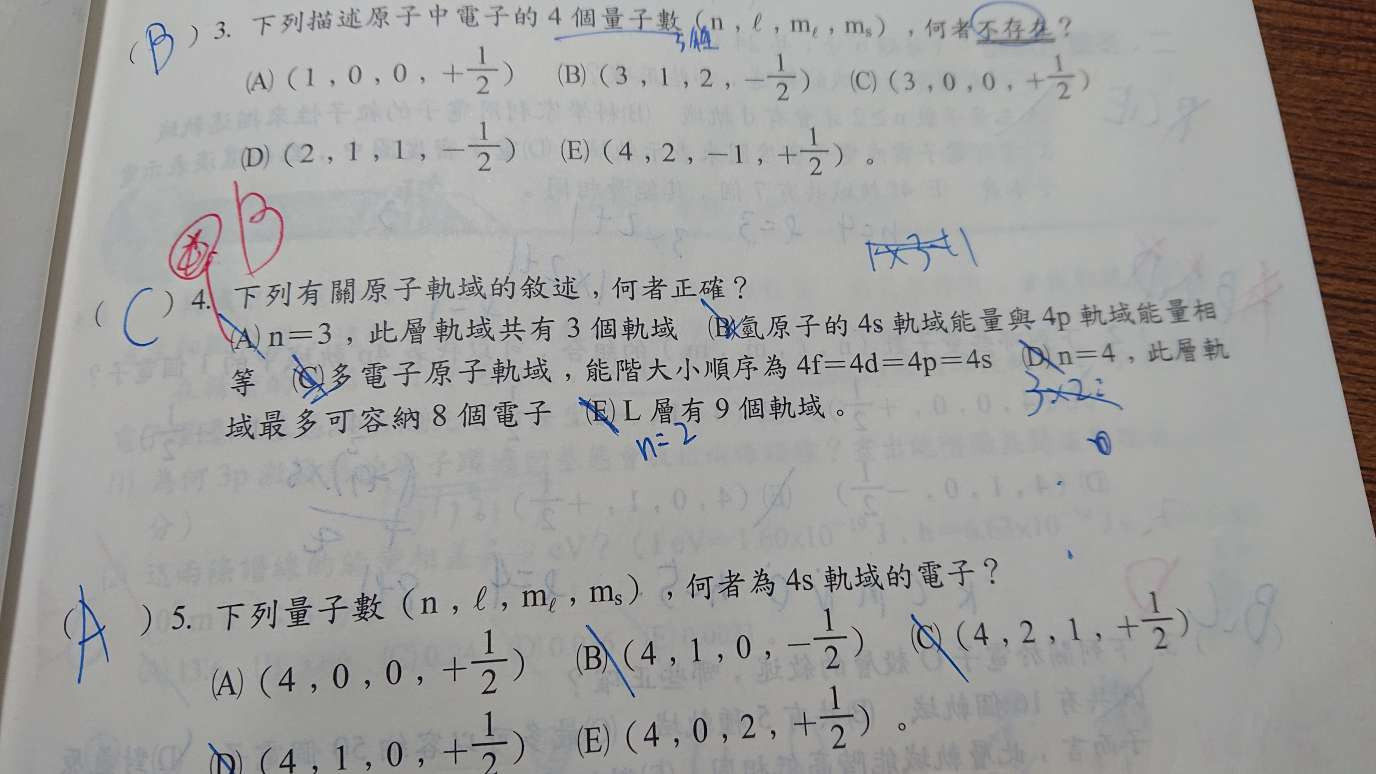 ( B ) 3. 下列描述原子中電子的 4 個量子數 (n, ℓ, mℓ, ms), 何者不存在?
(A) (1, 0, 0, +1/2) (B) (3, 1, 2, -1/2) (C) (3, 0, 0, +1/2)
(D) (2, 1, 1, -1/2) (E) (4, 2, -1, +1/2)。
B
( C ) 4. 下列有關原子軌域的敘述, 何者正確?
(A) n=3, 此層軌域共有 3 個軌域 (B) 氫原子的 4s 軌域能量與 4p 軌域能量相
等 (C) 多電子原子軌域, 能階大小順序為 4f=4d=4p=4s (D) n=4, 此層軌
域最多可容納 8 個電子 (E) L 層有 9 個軌域。
n=2
( A ) 5. 下列量子數 (n, ℓ, mℓ, ms), 何者為 4s 軌域的電子?
(A) (4, 0, 0, +1/2) (B) (4, 1, 0, -1/2) (C) (4, 2, 1, +1/2)
(D) (4, 1, 0, +1/2) (E) (4, 0, 2, +1/2)。